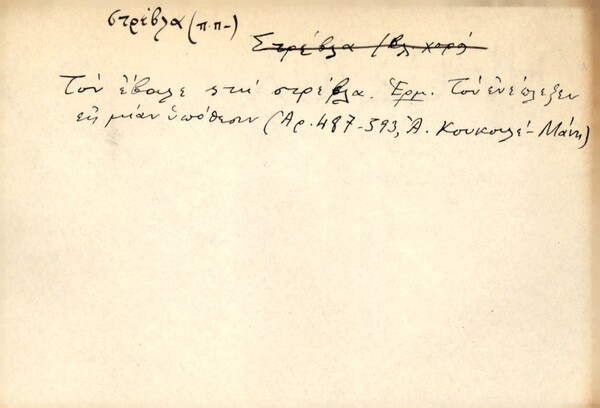 στρέβλα (π.π-)
Στρέβλα (βλ. χορό)
Τόν ἔβαλε στή στρέβλα. Ἑρμ. Τόν ἐνέπλεξεν
εἰς μίαν ὑπόθεσιν (Ἀρ. 487-593, Ἀ. Κουκουλέ - Μάνη)